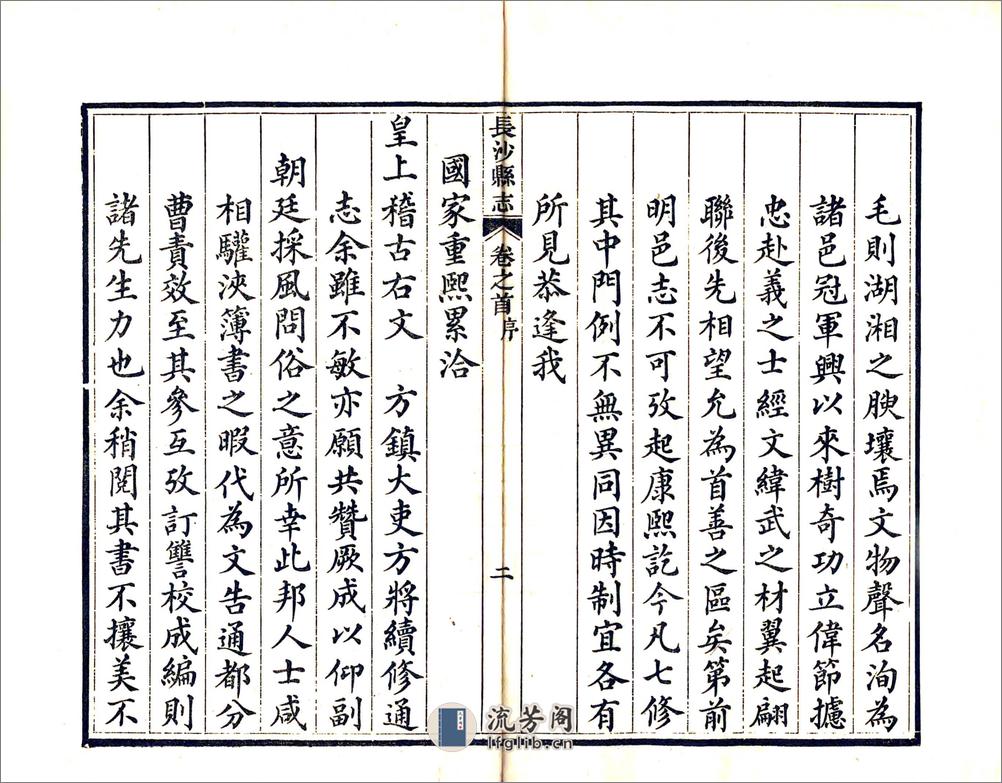 毛則湖湘之腴壤焉文物聲名洵為
諸邑冠軍興以來樹奇功立偉節攄
忠赴義之士經文緯武之材翼起翩
聯後先相望允為首善之區矣第前
明邑志不可攷起康熙訖今凡七修
其中門例不無異同因時制宜各有
所見恭逢我
國家重熙累洽
長沙縣志 卷之首 序 二
皇上稽古右文 方鎮大吏方將續修通
志余雖不敏亦願共贊厥成以仰副
朝廷採風問俗之意所幸此邦人士咸
相驩浹簿書之暇代為文告通都分
曹責效至其參互攷訂讐校成編則
諸先生力也余稍閱其書不攘美不
流芳阁
lfglib.cn